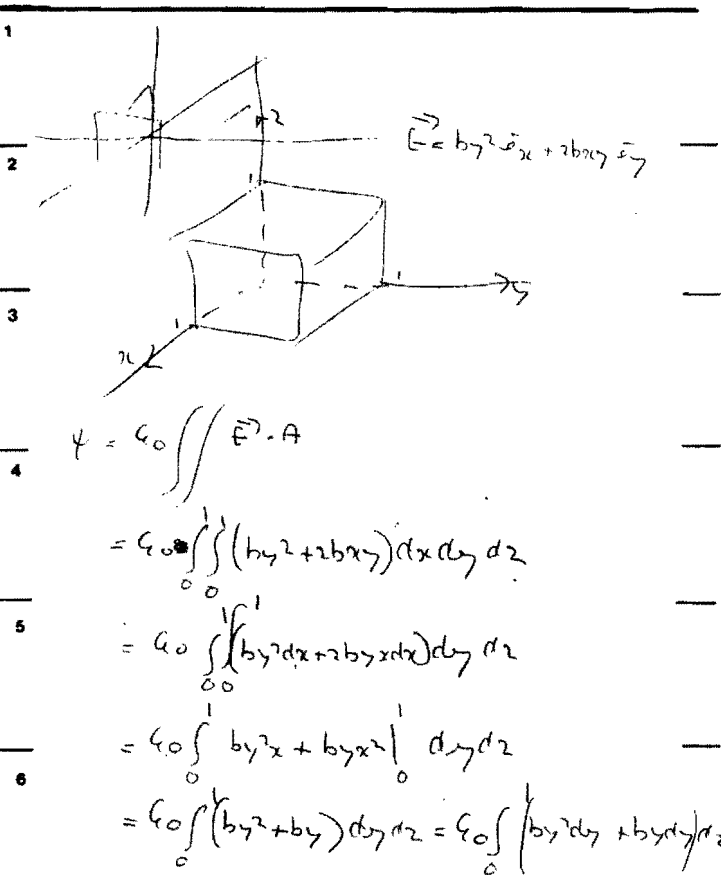 1
2
z
E⃗ = by² ēx + 2bxy ēy
3
1
1
1
y
x
4
ψ = ε₀ ∬ E⃗ · A
= ε₀ ∫₀¹ ∫₀¹ (by² + 2bxy) dx dy dz
5
= ε₀ ∫₀¹ ∫₀¹ (by²dx + 2byxdx) dy dz
= ε₀ ∫₀¹ by²x + byx² |₀¹ dy dz
6
= ε₀ ∫₀¹ (by² + by) dy dz = ε₀ ∫₀¹ (by²dy + bydy) dz